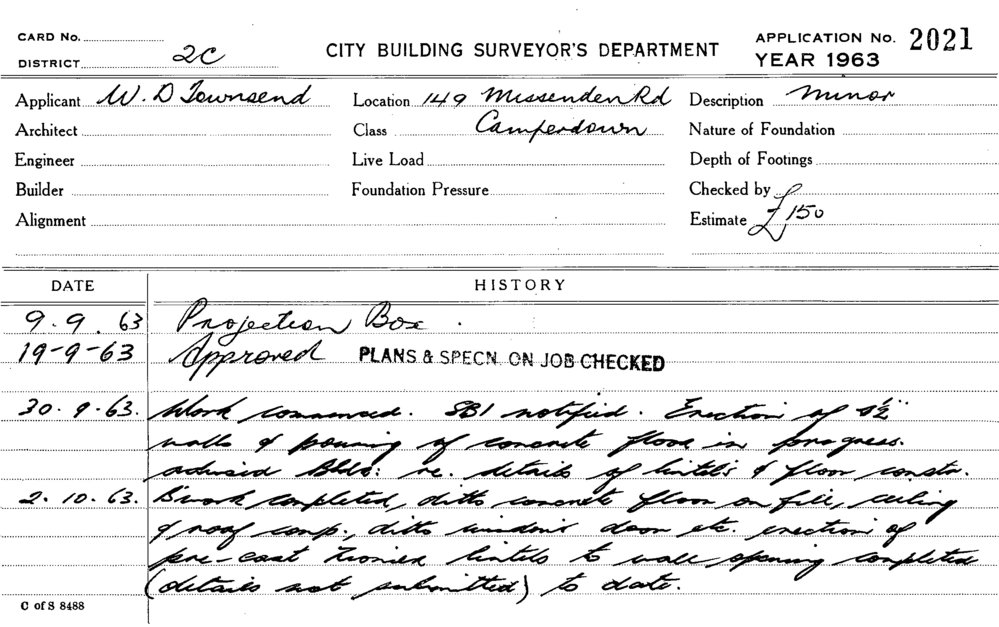 CARD No.
DISTRICT 2C
CITY BUILDING SURVEYOR'S DEPARTMENT
APPLICATION No. 2021
YEAR 1963
Applicant W. D Townsend Location 149 Missenden Rd Description Minor
Architect Class Camperdown Nature of Foundation
Engineer Live Load Depth of Footings
Builder Foundation Pressure Checked by
Alignment Estimate £150
DATE HISTORY
9.9.63 Projection Box.
19-9-63 Approved PLANS & SPECN. ON JOB CHECKED
30.9.63. Work commenced. SBI notified. Erection of
walls & pouring of concrete floor in progress.
advised Bldr: re. details of lintels & floor constr.
2.10.63. B'work completed, ditto concrete floor on fill, ceiling
& roof comp; ditto door etc. erection of
pre-cast lintels to wall opening completed
(details not submitted) to date.
C of S 8488